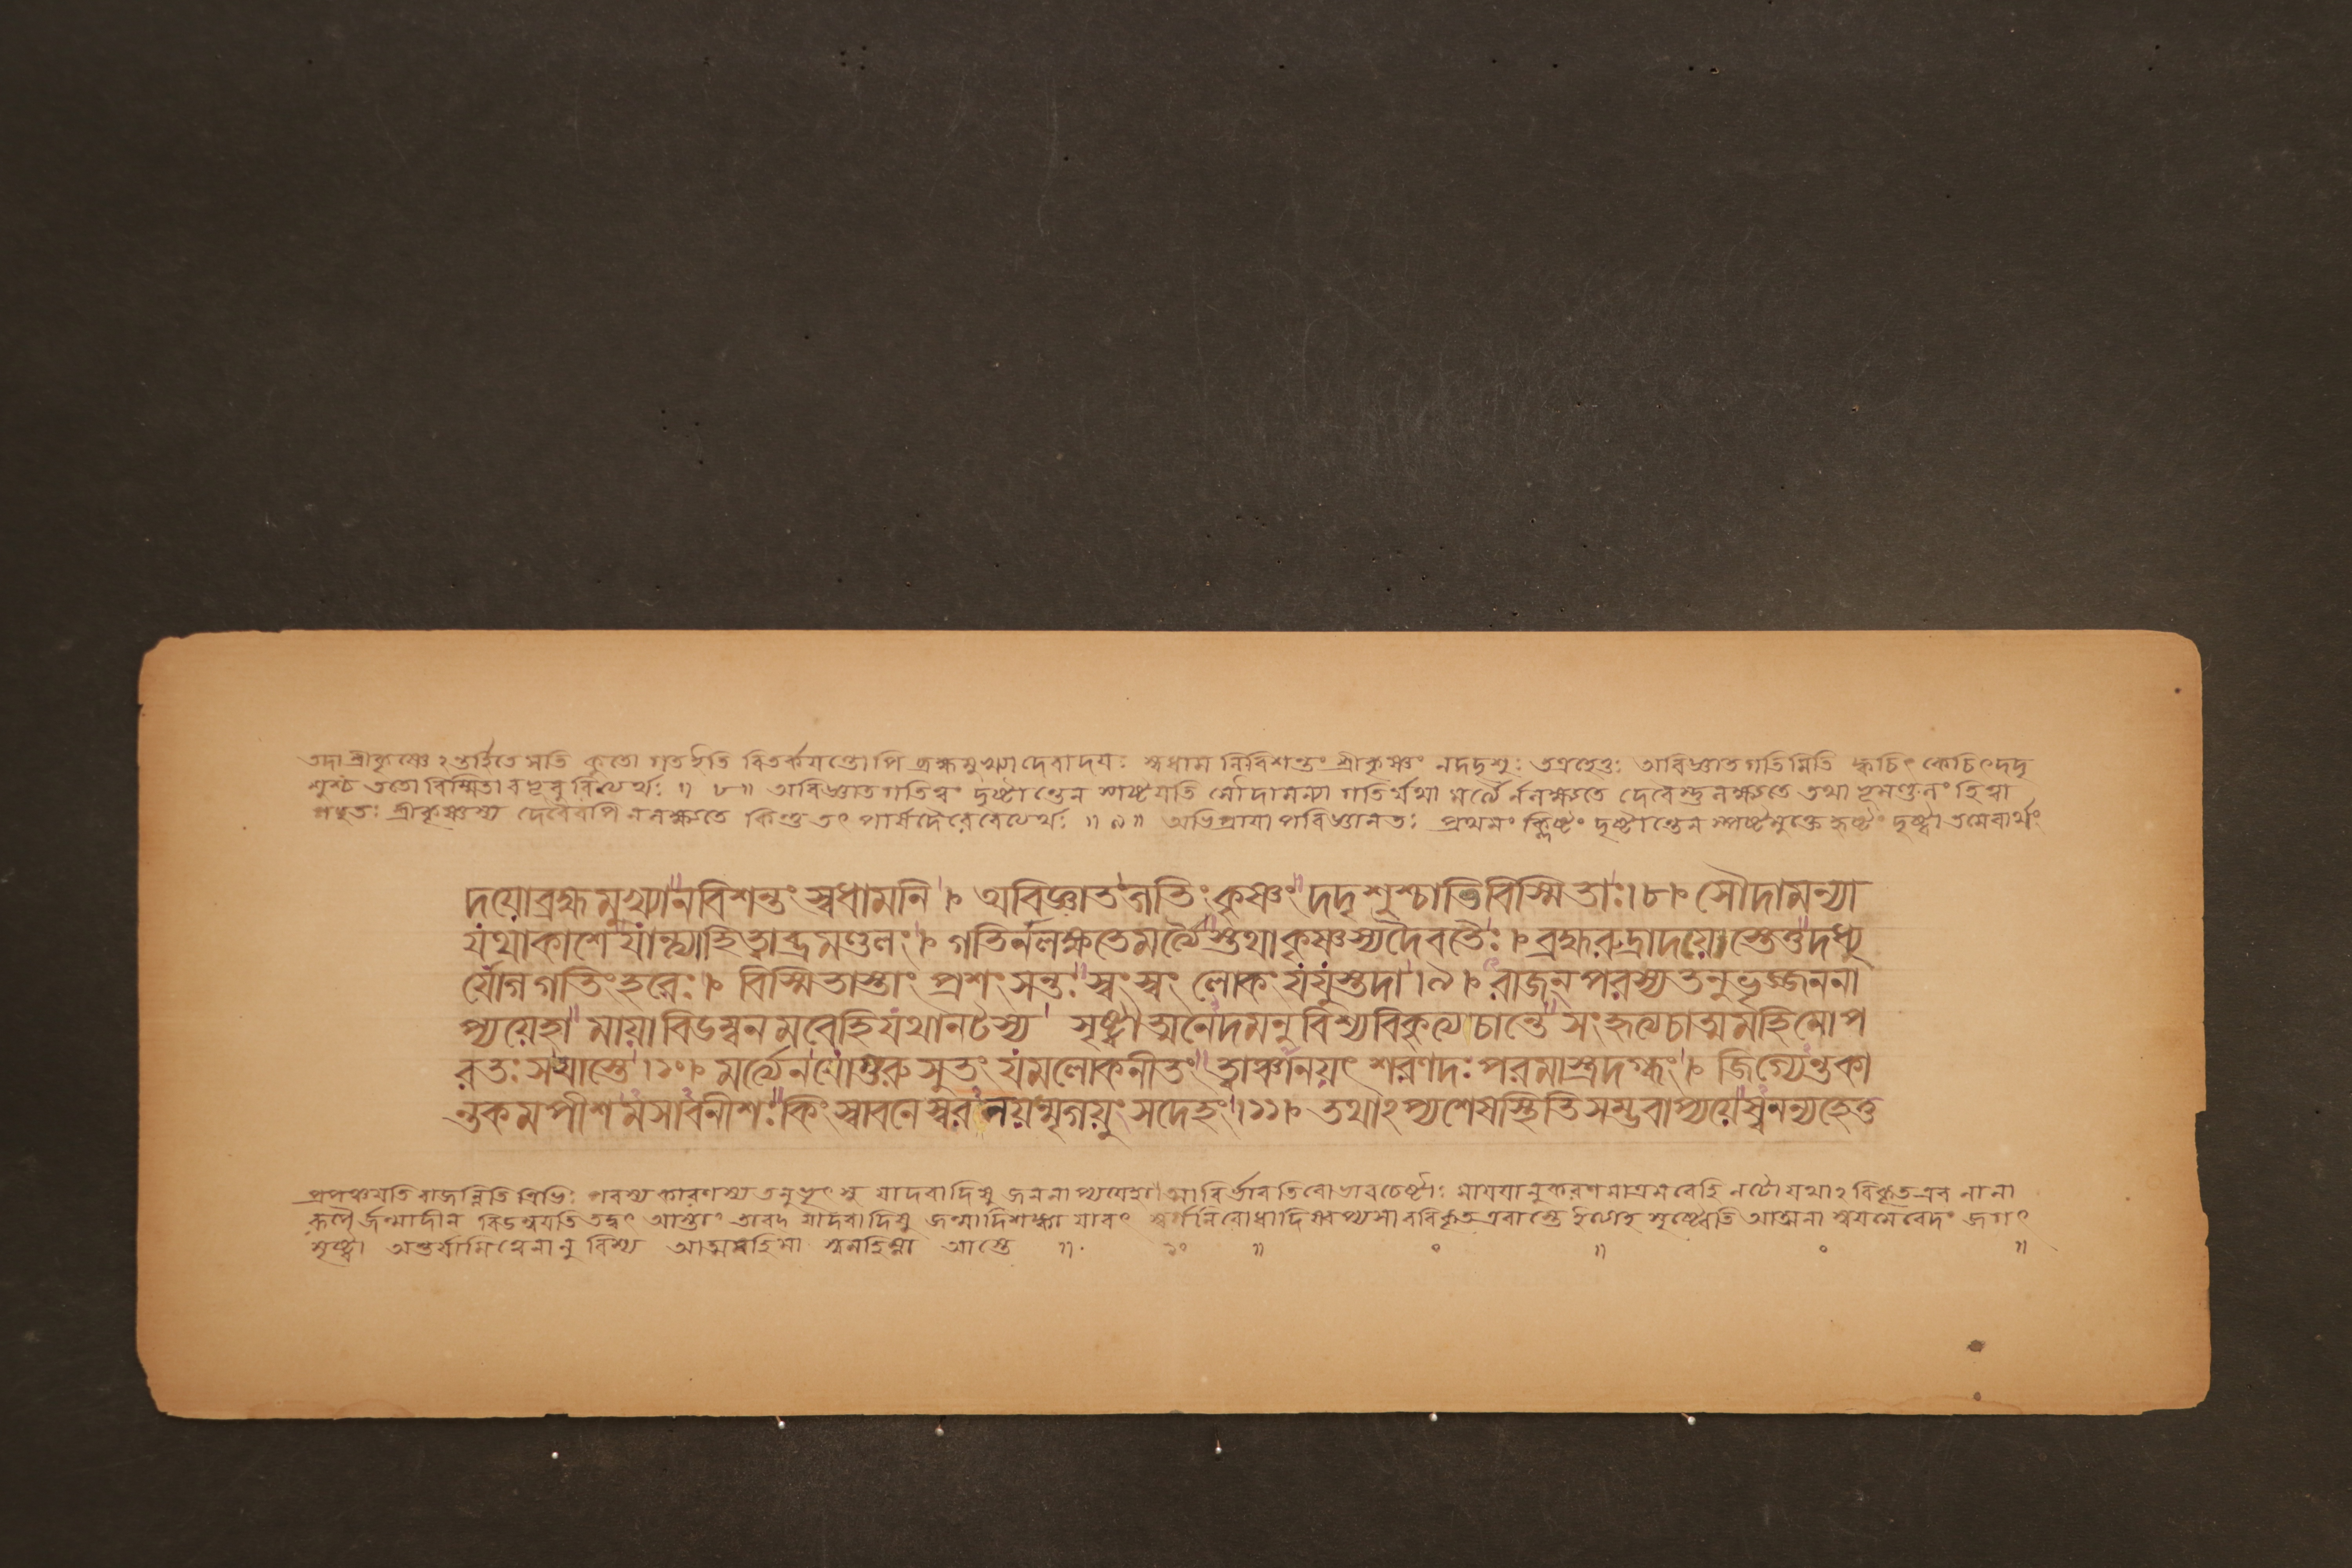 তদা শ্রীকৃষ্ণেঽন্তর্হিতে সতি কুতো গত ইতি বিতর্কয়ন্তোপি ব্রহ্মমুখ্যাদেবাদয়ঃ স্বধাম নিবিশন্তং শ্রীকৃষ্ণং নদদৃশুঃ তত্রহেতুঃ অবিজ্ঞাতগতিমিতি ক্বচিৎ কেচিৎদদৃ
শুশ্চ ততো বিস্মিতা বভূবুরিত্যর্থঃ ॥ ৮॥ অবিজ্ঞাতগতিত্বং দৃষ্টান্তেন স্পষ্টয়তি সৌদামন্যা গতির্যথা মর্ত্যৈর্নলক্ষ্যতে দেবৈস্তুলক্ষ্যতে তথা ভূমণ্ডলং হিত্বা
গচ্ছতঃ শ্রীকৃষ্ণস্য দেবৈরপি নলক্ষ্যতে কিন্তু তৎ পার্ষদৈরেবেত্যর্থঃ ॥ ৯॥ প্রথমং দৃষ্টান্তেন
দয়োব্রহ্মমুখ্যানবিশন্তং স্বধামনি । অবিজ্ঞাতগতিং কৃষ্ণং দদৃশুশ্চাতিবিস্মিতাঃ।৮। সৌদামন্যা
যথাকাশে যান্ত্যাহিত্বাভ্রমণ্ডলং । গতির্নলক্ষ্যতেমর্ত্যৈস্তথাকৃষ্ণস্যদৈবতৈঃ । ব্রহ্মরুদ্রাদয়োস্তেতুদধ্যু
র্যোগগতিংহরেঃ । বিস্মিতাস্তাং প্রশংসন্তঃ স্বংস্বং লোকং যযুস্তদা।৯। রাজন্পরস্যতনুভৃজ্জননা
প্যয়েহা মায়াবিডম্বনমবেহিযথানটস্য সৃষ্ট্বাত্মনেদমনুবিশ্যবিহৃত্যচান্তে সংহৃত্যচাত্মমহিমোপ
রতঃ সআস্তে।১০। মর্ত্যেনযোগুরুসুতং যমলোকনীতং ত্বাঞ্চানয়ৎ শরণদঃপরমাস্ত্রদগ্ধং । জিগ্যেন্তকা
ন্তকমপীশমসাবনীশঃকিং স্বাবনেস্বরনয়ন্মৃগয়ুংসদেহং।১১। তথাঽপ্যশেষস্থিতিসম্ভবাপ্যয়েষ্বনন্যহেতু
প্রপঞ্চয়তি রাজন্নিতি ত্রিভিঃ পরস্য কারণস্য তনুভৃৎসু যাদবাদিষু জননাপ্যয়েহা আবির্ভাবতিরোভাবচেষ্টাঃ মায়য়ানুকরণমাত্রমবেহি নটো যথাঽবিকৃতএব নানা
রূপৈর্জন্মাদীন বিডম্বয়তি তদ্বৎ আস্তাং তাবদ যাদবাদিষু জন্মাদিশঙ্কা যাবৎ সৃষ্ট্বেতি আত্মনা স্বয়মেবেদং জগৎ
সৃষ্ট্বা অন্তর্যামিত্বেনানুবিশ্য আত্মমহিমা স্বমহিম্না আস্তে ॥ ১০ ॥ ০ ॥ ০ ॥